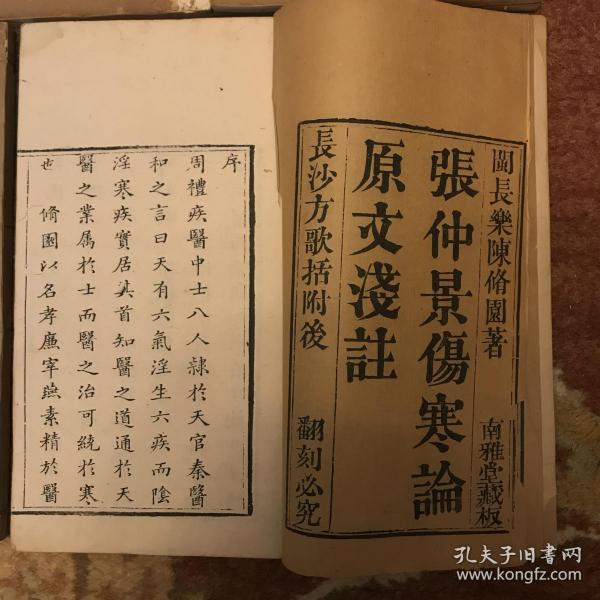 閩長樂陳脩園著
南雅堂藏板
張仲景傷寒論
原文淺註
長沙方歌括附後
翻刻必究
序
周禮疾醫中士八人隸於天官秦醫
和之言曰天有六氣淫生六疾而陰
淫寒疾實居其首知醫之道通於天
醫之業属於士而醫之治可統於寒
也 脩園以名孝廉宰燕素精於醫
孔夫子旧書网
www.kongfz.com